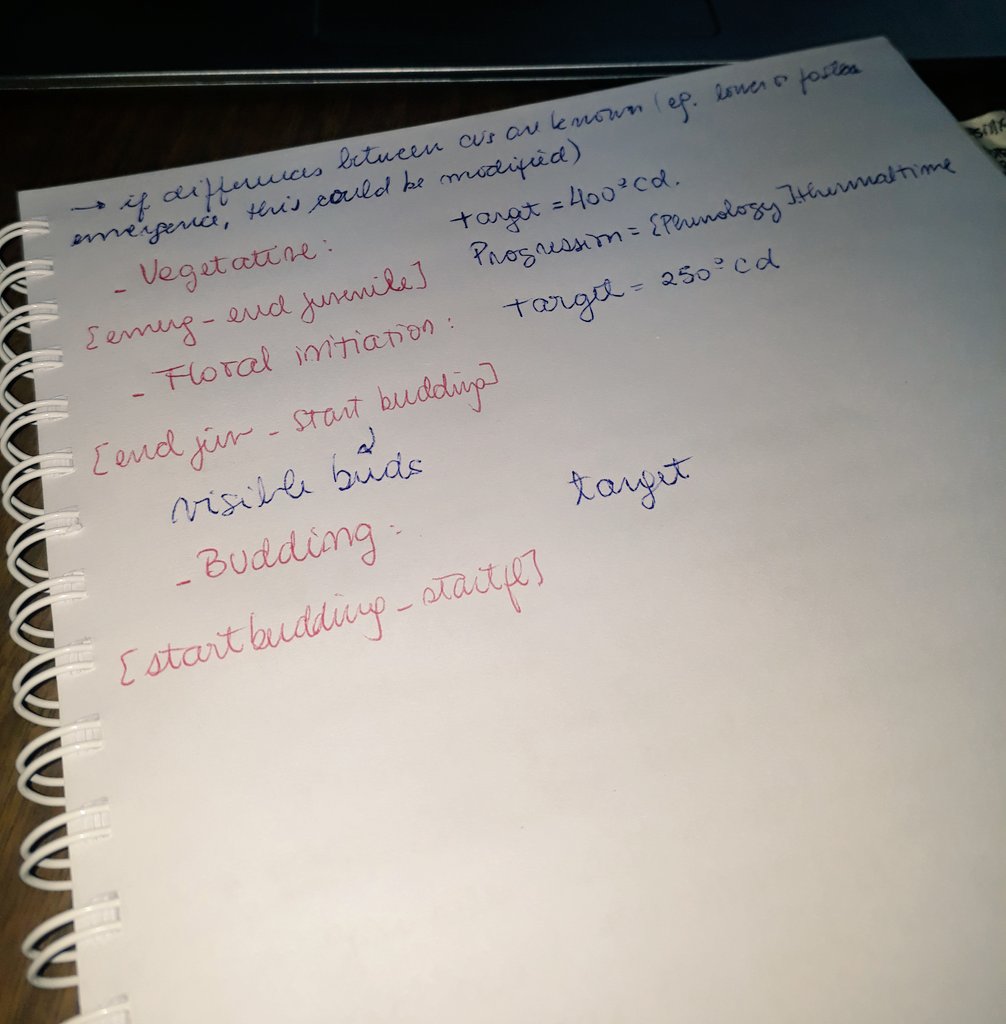 → if differences between cvs are known (eg. lower or faster
emergence, this could be modified)
- Vegetative: target = 400°cd.
[emerg - end juvenile] Progression = [Phenology].thermaltime
- Floral initiation: target = 250°cd
[end juv - start budding]
visible buds
- Budding: target
[start budding - start fl]